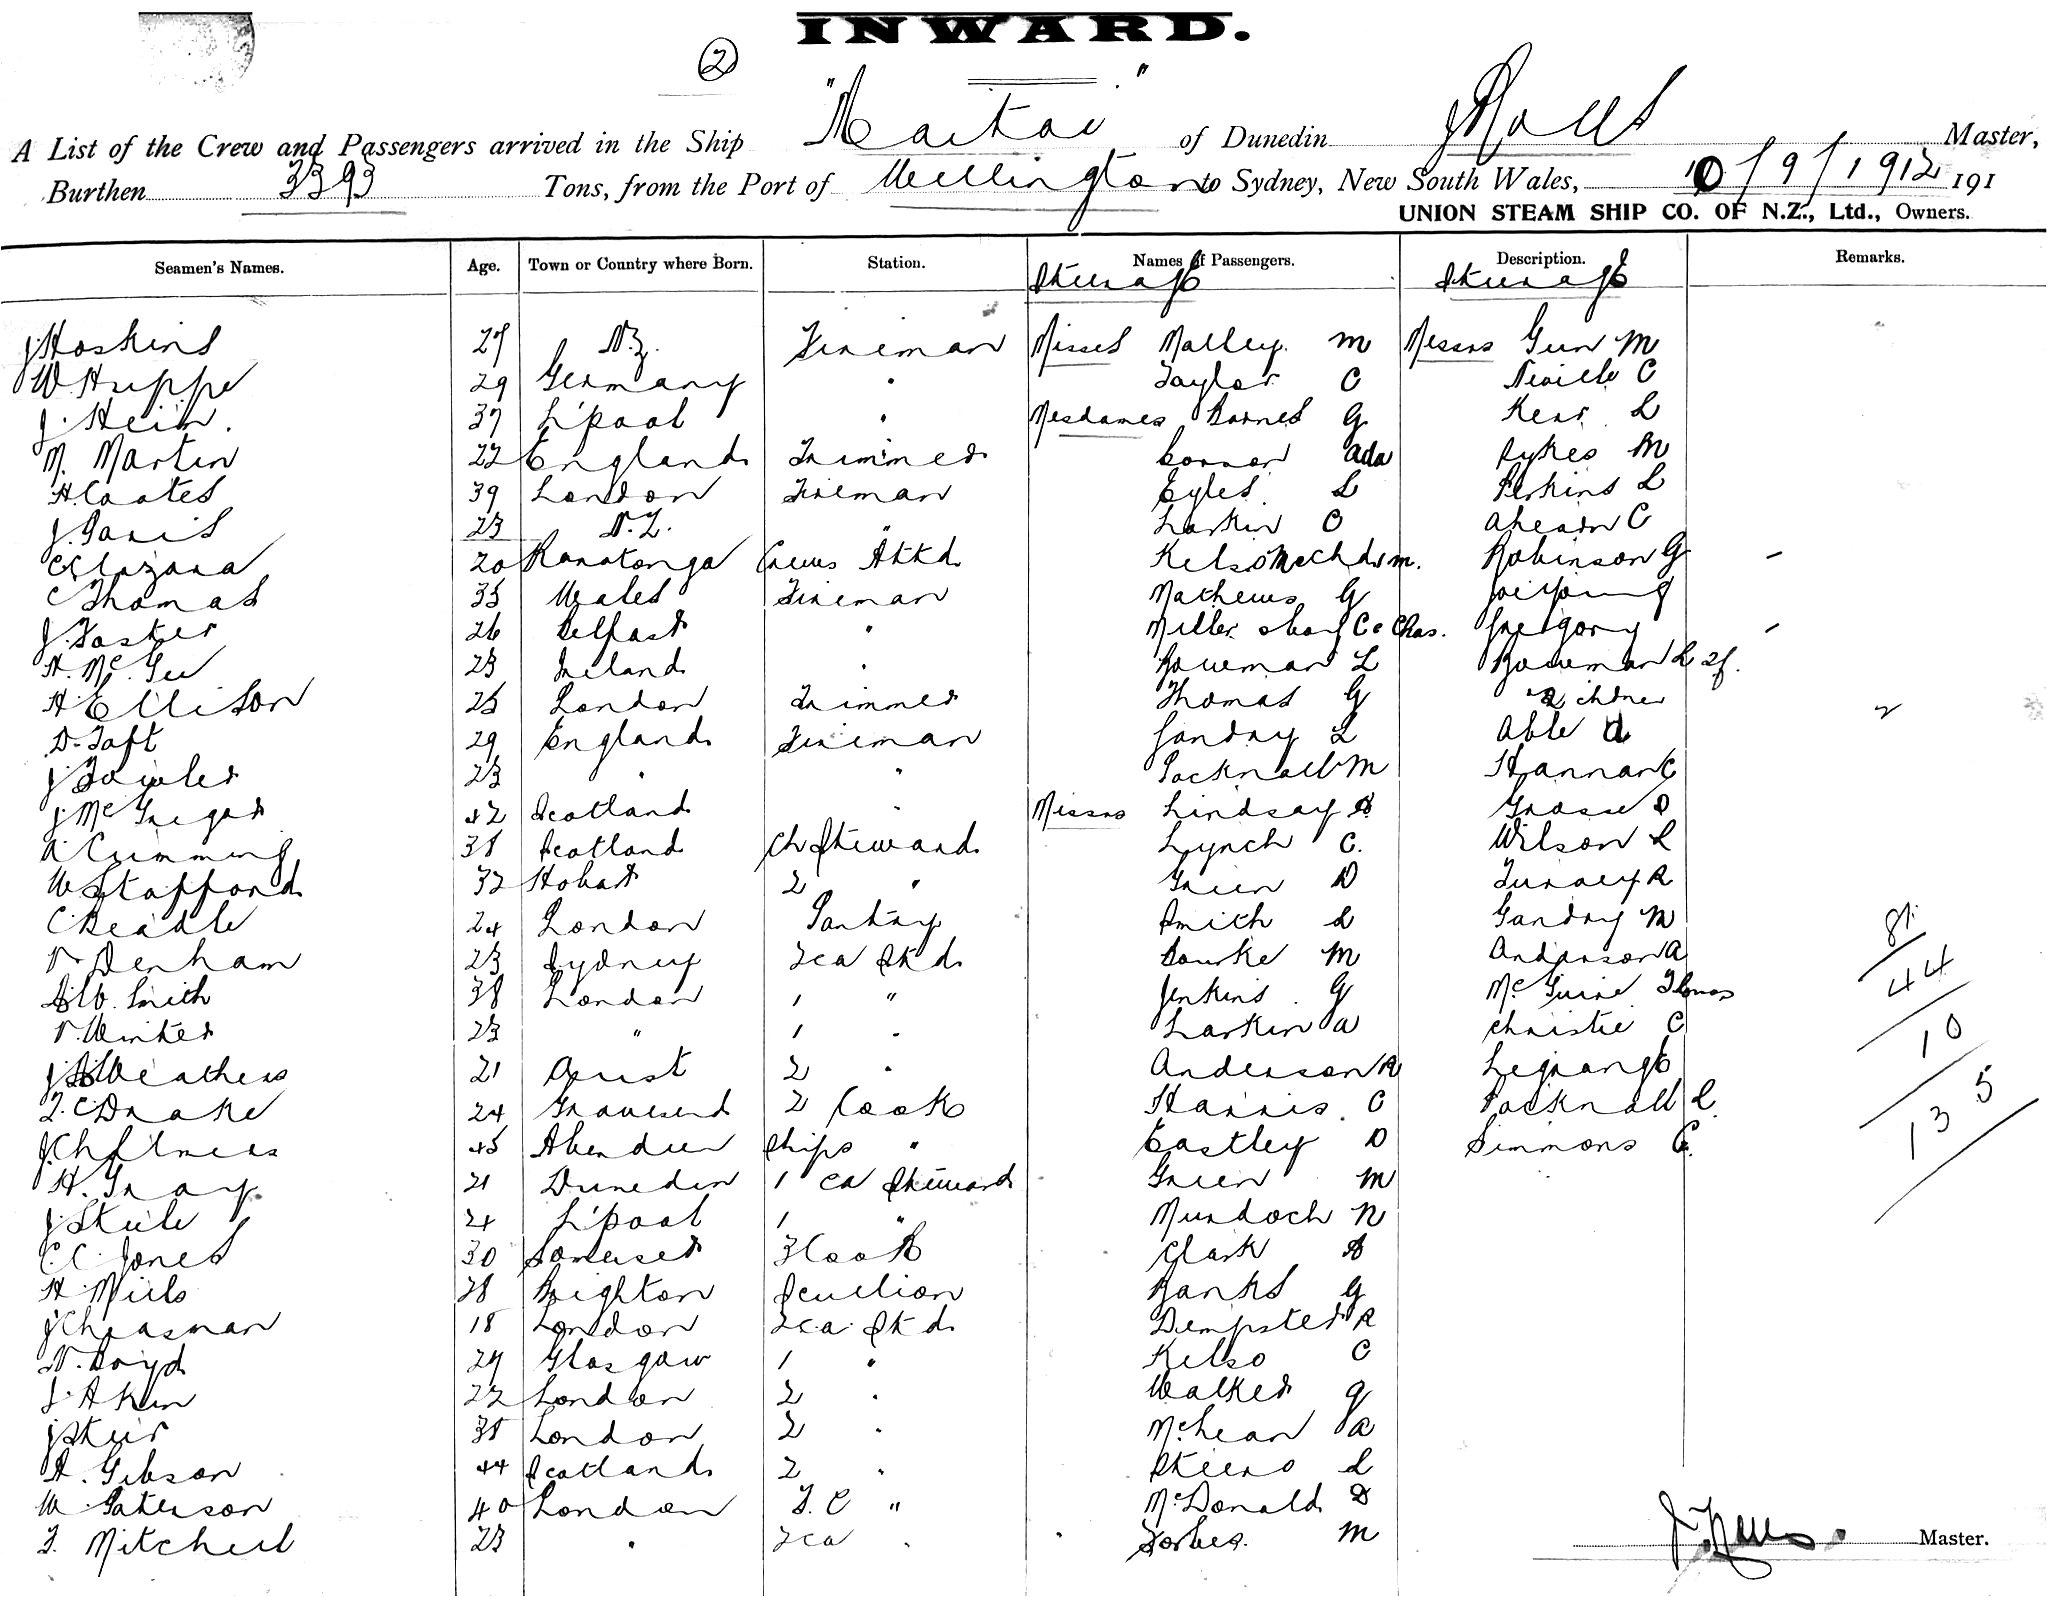 INWARD.
2
A List of the Crew and Passengers arrived in the Ship "Maitai" of Dunedin Master,
Burthen 3393 Tons, from the Port of Wellington to Sydney, New South Wales, 10/9/1912 191
UNION STEAM SHIP CO. OF N.Z., Ltd., Owners.
Seamen's Names. Age. Town or Country where Born. Station. Names of Passengers. Description. Remarks.
Steerage Steerage
J Hoskins 27 N.Z. Fireman Misses Malley M Messrs Gun M
W. Huppe 29 Germany " Taylor C Neville C
J. Hein. 37 L'pool " Mesdames Barnes G Kerr L
M. Martin 22 England Trimmer Connor Ada Sykes M
H Coates 39 London Fireman Eyles L Perkins L
J. Davis 23 N.Z. " Larkin C Ahearn C
20 Rarotonga Crews Attd. Kelso Robinson G
C Thomas 35 Wales Fireman Mathews G Joe Young
J. Foster 26 Belfast " Miller Chas. Gregory
H. McGee 23 Ireland " Bowman L Bowman L
H Ellison 25 London Trimmer Thomas G 2 chdren
D. Taft 29 England Fireman Gandry L Able
J Fowler 23 " " Packnall M Hannan C
J McGregor 42 Scotland " Messrs Lindsay Grosse D
A Cumming 38 Scotland Ch Steward Lynch C. Wilson L
W Stafford 32 Hobart 2 " Green D Turney R
C Beadle 24 London Pantry Smith L Gandry M
V Denham 23 Sydney 2 ca Std. Bourke M Anderson A
W. Smith 38 London 1 " Jenkins G McGuire Thomas
V. Winter 23 " 1 " Larkin A Christie C
Weathers 21 Aust 2 " Anderson R Legrange
T. C Drake 24 Gravesend 2 Cook Harris C Packnall L
45 Aberdeen Ships " Eastley D Simmons C.
H. Gray 21 Dunedin 1 ca Steward Green M
J Steele 24 L'pool 1 " Murdoch N
C. C. Jones 30 Somerset 3 Cook Clark A
H Mills 28 Brighton Scullion Banks G
J Cheasman 18 London 2 ca. Std. Dempster R
N. Boyd 29 Glasgow 1 " Kelso C
J Akin 22 London 2 " Walker G
38 London 2 " McLean A
A. Gibson 44 Scotland 2 " L
W Paterson 40 London F. C " McDonald D
F. Mitchell 23 " 2 ca " Forbes. M
81
44
10
135
Master.